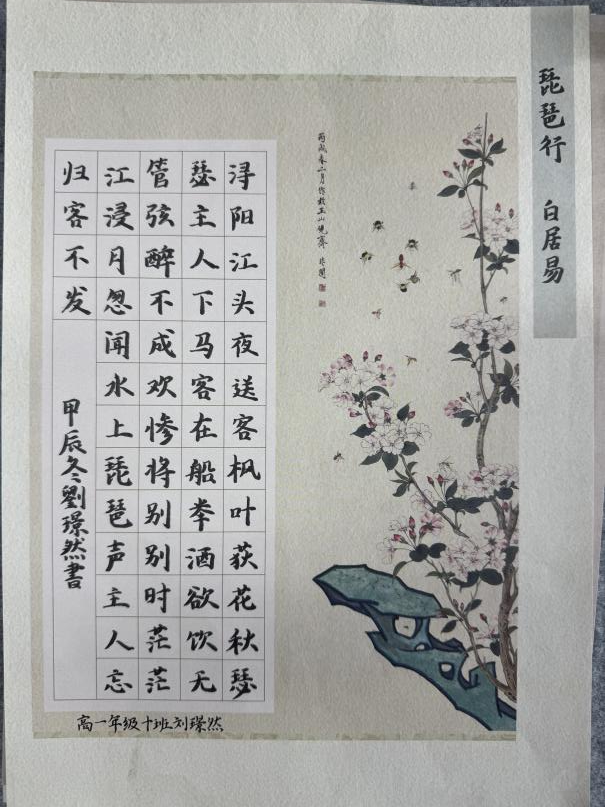 琵琶行 白居易
浔阳江头夜送客枫叶荻花秋瑟
瑟主人下马客在船举酒欲饮无
管弦醉不成欢惨将别别时茫茫
江浸月忽闻水上琵琶声主人忘
归客不发
甲辰冬劉璟然書
高一年级十班刘璟然